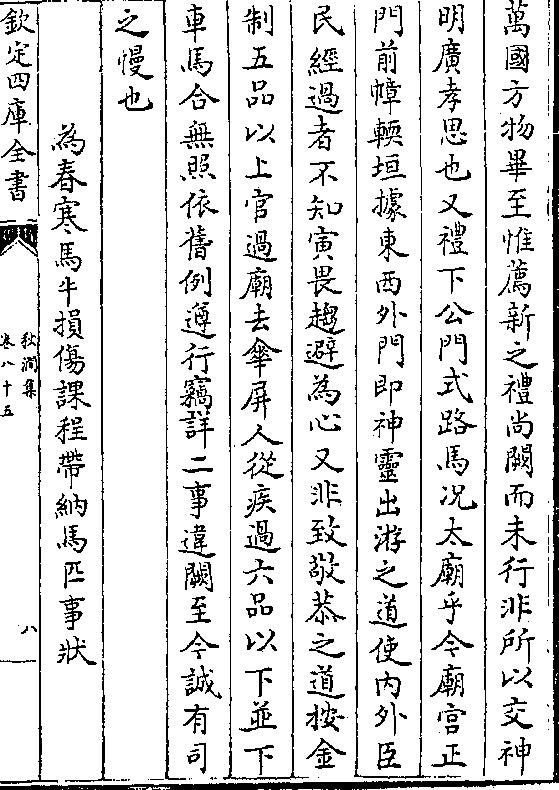 萬國方物畢至惟薦新之禮尚闕而未行非所以交神
明廣孝思也又禮下公門式路馬况太廟乎今廟宮正
門前幛輭垣據東西外門即神靈出游之道使内外臣
民經過者不知寅畏趨避為心又非致敬恭之道按金
制五品以上官過廟去傘屏人從疾過六品以下並下
車馬合無照依舊例遵行竊詳二事違闕至今誠有司
之慢也
為春寒馬牛損傷課程帶納馬匹事狀
欽定四庫全書
秋澗集
卷八十五
八